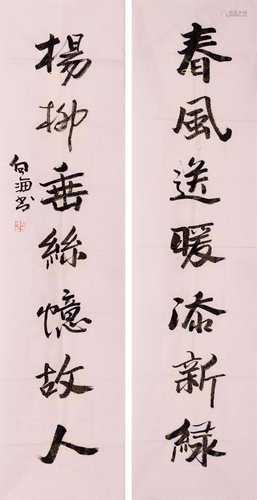 春風送暖添新綠
楊柳垂絲憶故人
向海书